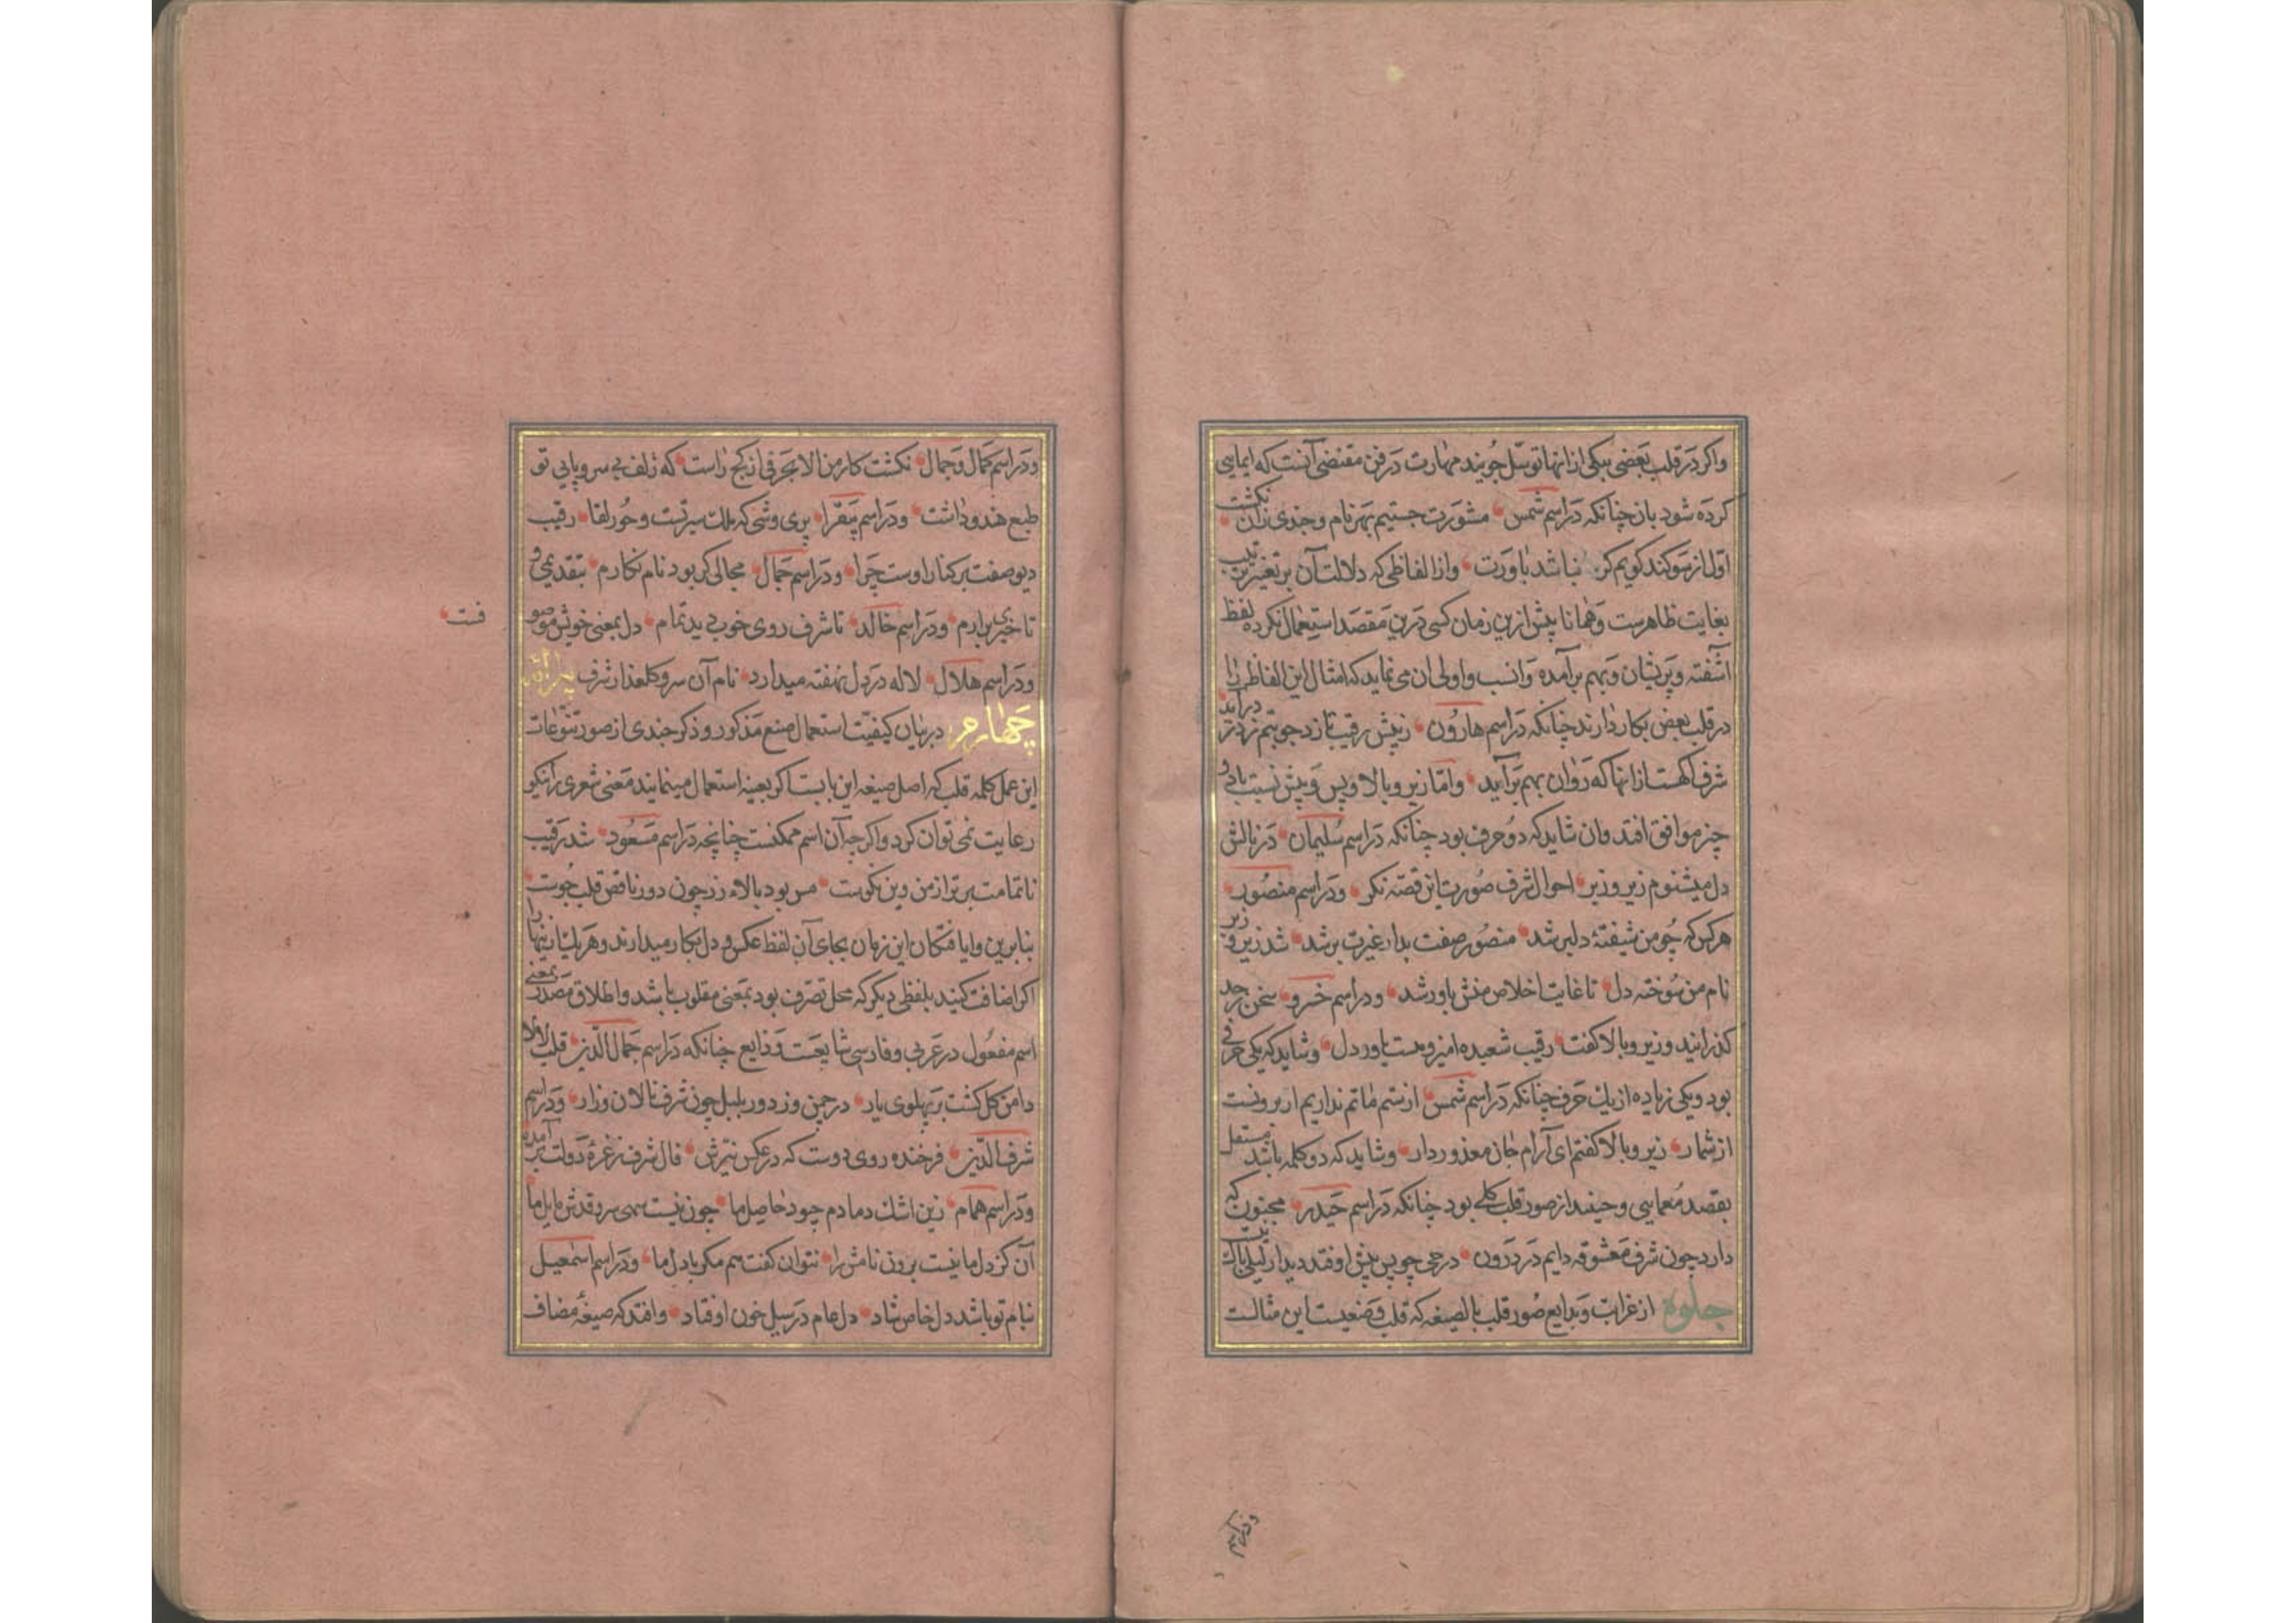 واکر در قلب بعضی بیکی ازانها توسّل جویند مهارت در فن مقتضی آنست که ایمایی
کرده شود بان چنانکه در اسم شمس مشورت جستیم بهر نام وجدی زان نکشت
اول از سوکند کویم کر نباشد باورت وازالفاظی که دلالت آن بر تغییر ترتیب
بغایت ظاهرست وهمانا پیش ازین زمان کسی درین مقصد استعمال نکرده لفظ
آشفته وپریشان وبهم برآمده وانسب واولی ان می نماید که امثال این الفاظ را
در قلب بعض بکار دارند چنانکه در اسم هارون زپیش رقیب تازد جوبتم نزد تر درآید
شرف آهست ازانها که روان بهم برآیید وامّا زیر وبالا وپس وپیش نسبت با دو
چیز موافق افتد وان شاید که دو حرف بود چنانکه در اسم سلیمان در نالش
دل میشنوم زیر وزبر احوال شرف صورت این قصّه نکر ودر اسم منصور
هرکس که چو من شیفتهٔ دلبر شد منصور صفت بدار غیرت برشد شد زیر و زبر
نام من سوخته دل تا غایت اخلاص منش باور شد ودر اسم خسرو سخن بر حد
کذرانید وزیر وبالا کفت رقیب شعبده امیز ومست باور دل وشاید که یکی حرفی
بود ویکی زیاده از یک حرف چنانکه در اسم شمس از ستم ماتم نداریم از برونست
از شمار زیر وبالا کفتم ای آرام جان معذور دار وشاید که دو کلمه باشد مستقل
بقصد معمایی وحینئذ از صور قلب کلی بود چنانکه در اسم حیدر مجنون که
دارد چون شرف معشوقه دایم در درون در حی چو پس پیش اوفتد دیدار لیلی باک نیست
جلوه از غرایب وبدایع صور قلب بالصیغه که قلب وضعیست این مثالست
ودر اسم کمال وجمال نکشت کار من الا بحرفی از کج راست که زلف بی سر وپایی تو
طبع هندو داشت ودر اسم پیقرا پری وشی که ملک سیرتست وحور لقا رقیب
دیو صفت بر کنار اوست چرا ودر اسم جمال مجالی کر بود نام نکارم بتقدیمی و
تاخیری برارم ودر اسم خالد تا شرف روی خوب دید تمام دل بمعنی خویش موصو
فست
ودر اسم هلال لاله در دل نهفته میدارد نام آن سرو کلعذار شرف پیرایه
چهارم در بیان کیفیّت استعمال صنع مذکور وذکر چندی از صور تنوّعات
این عمل کلمه قلب که اصل صیغه این بابست اکر بعینه استعمال مینمایند معنی شعری را نیکو
رعایت نمی توان کرد واکر چه آن اسم ممکنست چنانچه در اسم مسعود شد رقیب
ناتمامت برتر از من وین نکوست مس بود بالاء زر چون دور ناقص قلب جوست
بنابرین وایافتکان این زمان بجای آن لفظ عکس و دل بکار میدارند وهر یک از اینها را
اکر اضافت کنند بلفظی دیکر که محل تصرّف بود بمعنی مقلوب باشد واطلاق مصدر بمعنی
اسم مفعول در عربی وفارسی شایعست وذایع چنانکه در اسم جمال الدّین قلب لالا
دامن کل کشت بر پهلوی یار در چمن وز دور بلبل چون شرف نالان وزار ودر اسم
شرف الدّین فرخنده روی دوست که در عکس نیّرش فال شرف زغرهٔ دولت برآمده
ودر اسم همام زین اشک دمادم چو د حاصل ما چون نیست سهی سرو قدش مایل ما
آن کز دل ما نیست برون نامش را نتوان کفت هم مکر با دل ما ودر اسم اسمعیل
نام تو باشد دل خاص شاد دل عام در سیل خون اوفتاد وافتد که صیغهٔ مضاف